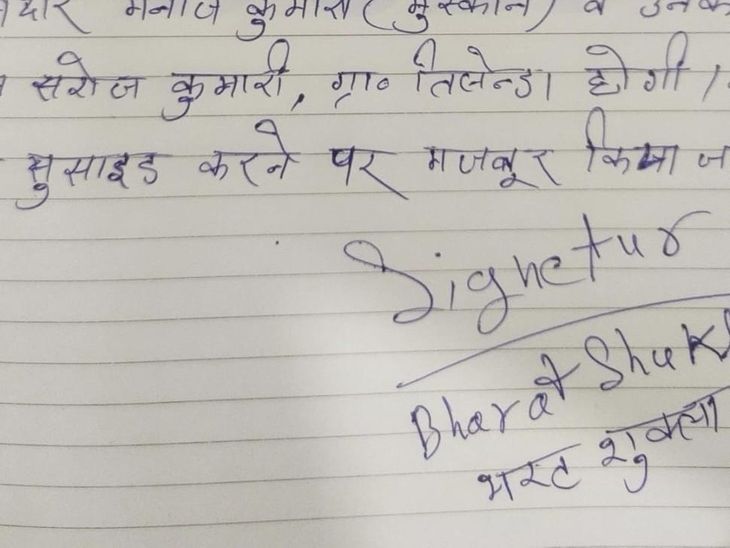 मनोज कुमार (मुस्कान) व उनक
सरोज कुमारी, ग्रा० तिलेन्डा होगी।
सुसाइड करने पर मजबूर किया ज
Signetur
Bharat Shukl
भरत शुक्ला